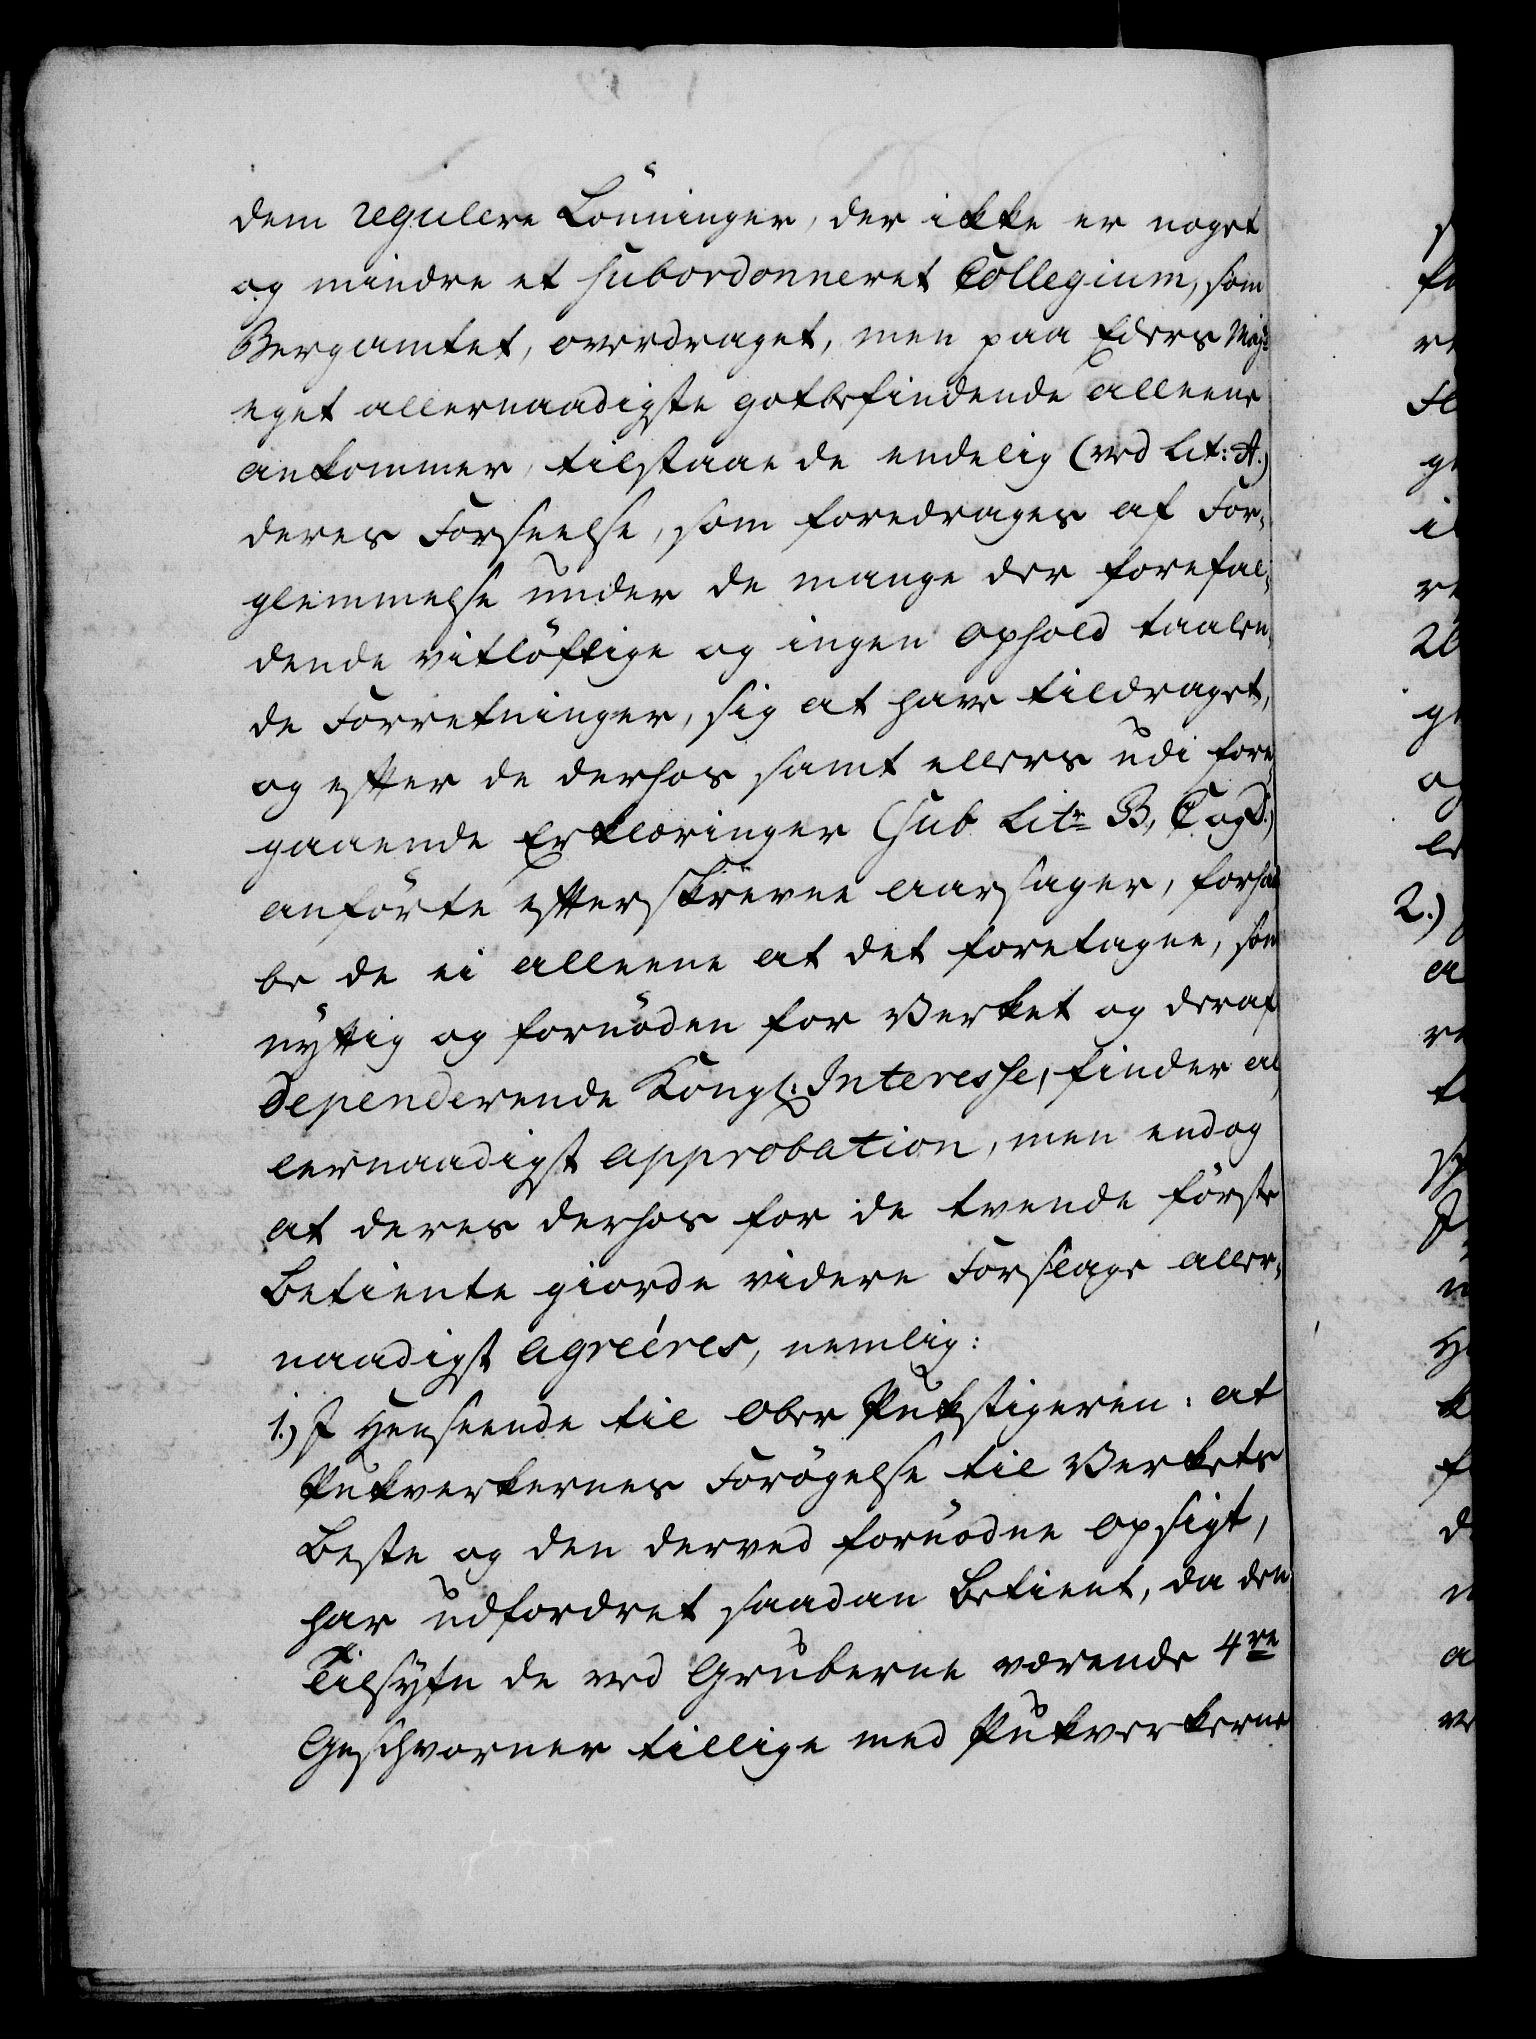 dem regulere Lönninger, der ikke er noget
og mindre et subordonneret Collegium, som
Bergamtet, overdraget, men paa Eders May:
eget allernaadigste gotbefindende alleene
ankommer, tilstaae de endelig (ved Lit: A.)
deres Forseelse, som foredrages af For-
glemmelse under de mange der forefal-
dende vitlöftige og ingen Ophold taalen-
de Forretninger, sig at have tildraget,
og efter de derhos samt ellers udi fore-
gaaende Erklæringer (sub Litr B, C og D.)
anförte efterskrevne aarsager, forhaa-
be de ei alleene at det foretagne, som
nyttig og fornöden for Verket og deraf
dependerende Kongl: Interesse, finder al-
lernaadigst approbation, men endog
at deres derhos for de tvende förste
Betiente giorde videre Forslage aller-
naadigst agreéres, nemlig:
1.) I Henseende til Ober Pukstigeren: at
Pukverkernes Forögelse til Verkets
Beste og den derved fornödne Opsigt,
har udfordret saadan Betient, da den
Tilsyfn de ved Gruberne værende 4re
Geschworner tillige med Pukverkerne
2.)